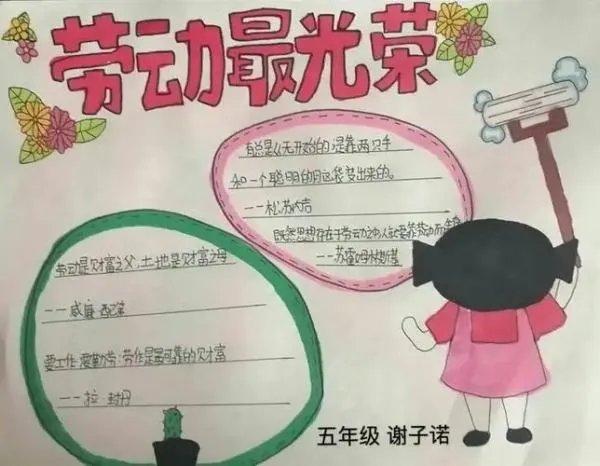 劳动最光荣
有总是从无开始的;是靠两只手
和一个聪明的脑袋变出来的。
——松苏内吉
既然思想存在于劳动之中,人就要靠劳动而生存
——苏霍姆林斯基
劳动是财富之父,土地是财富之母
——威廉 配第
要工作,要勤劳:劳作是最可靠的财富
——拉·封丹
五年级 谢子诺